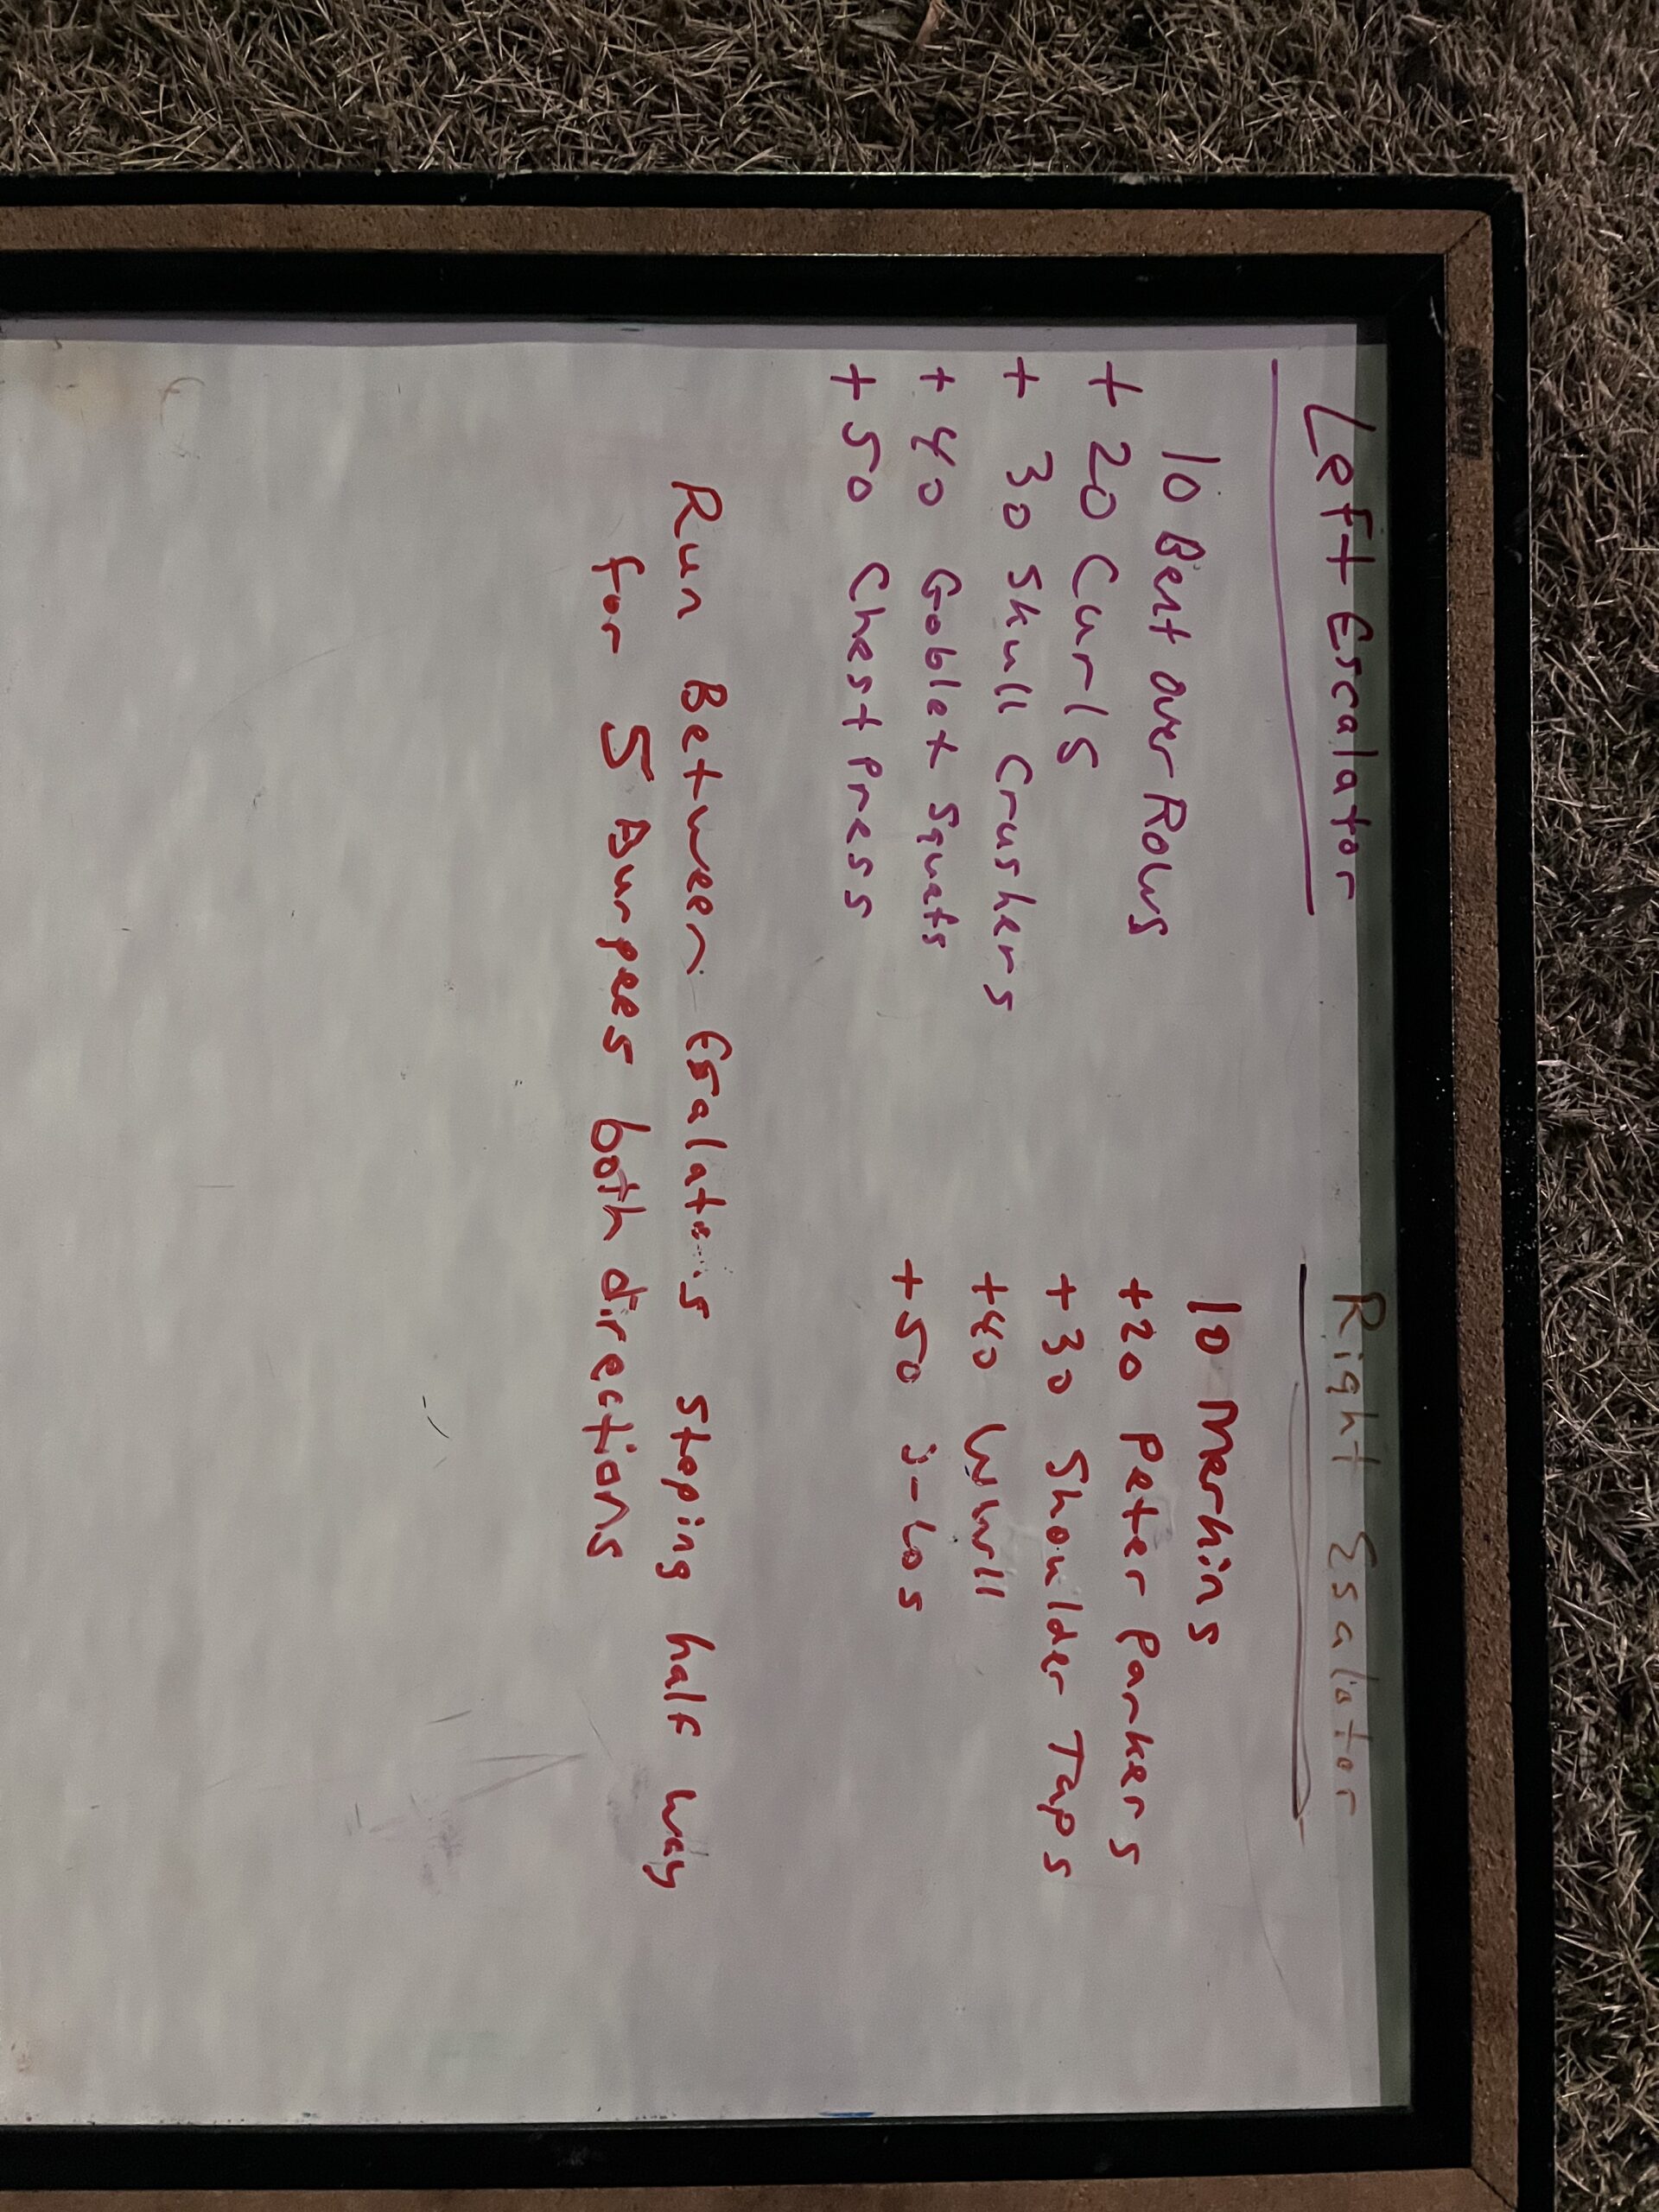 Left Escalator
10 Bent over Rows
+ 20 Curls
+ 30 Skull Crushers
+ 40 Goblet Squats
+ 50 Chest Press
Right Esalator
10 Merkins
+20 Peter Parkers
+ 30 Shoulder Taps
+40 WWII
+50 J-Los
Run Between Esalators stoping half way
for 5 Burpees both directions